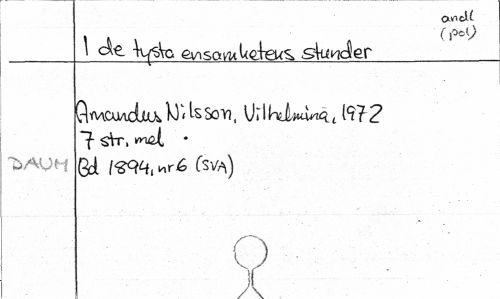 andl
(pol)
I de tysta ensamhetens stunder
Amandus Nilsson, Vilhelmina, 1972
7 str, mel
DAUM Bd 1894, nr 6 (SVA)